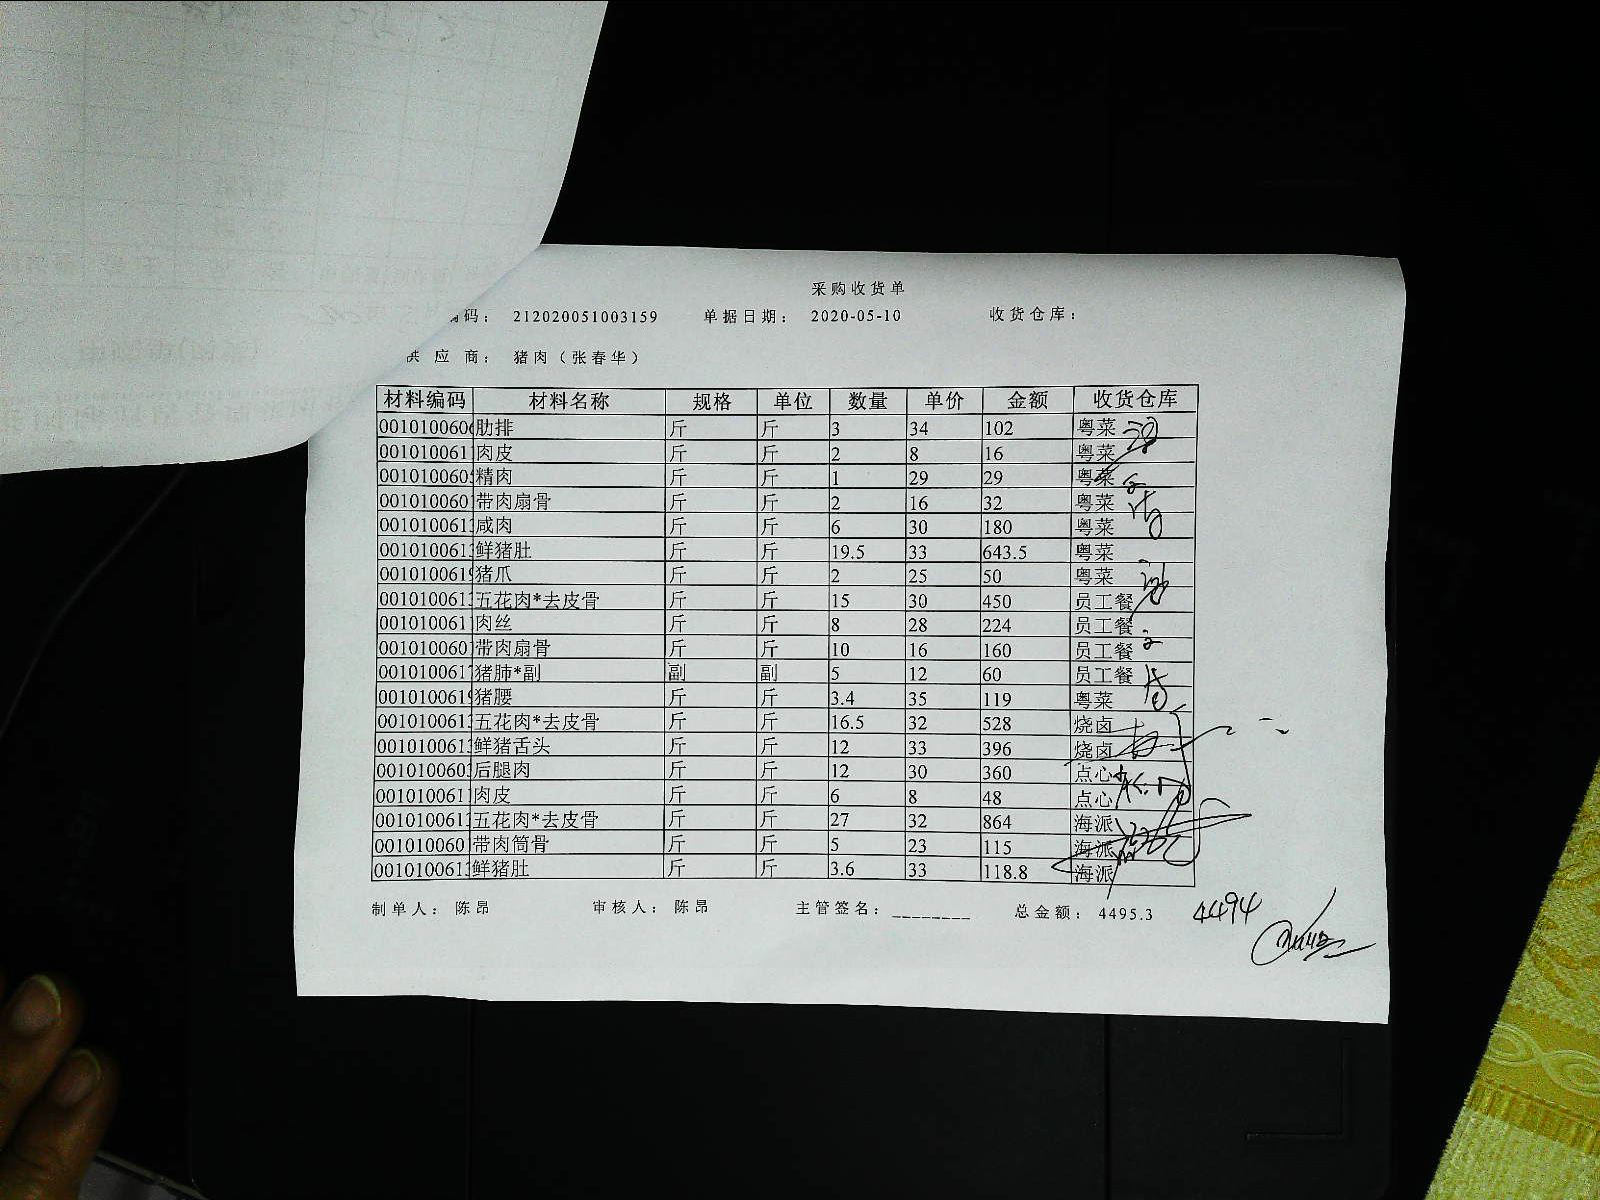 采购收货单
编码： 212020051003159 单据日期： 2020-05-10 收货仓库：
供 应 商： 猪肉（张春华）
材料编码 材料名称 规格 单位 数量 单价 金额 收货仓库
0010100606 肋排 斤 斤 3 34 102 粤菜
001010061 肉皮 斤 斤 2 8 16 粤菜
001010060 精肉 斤 斤 1 29 29 粤菜
001010060 带肉扇骨 斤 斤 2 16 32 粤菜
001010061 咸肉 斤 斤 6 30 180 粤菜
001010061 鲜猪肚 斤 斤 19.5 33 643.5 粤菜
001010061 猪爪 斤 斤 2 25 50 粤菜
001010061 五花肉*去皮骨 斤 斤 15 30 450 员工餐
001010061 肉丝 斤 斤 8 28 224 员工餐
001010060 带肉扇骨 斤 斤 10 16 160 员工餐
001010061 猪肺*副 副 副 5 12 60 员工餐
001010061 猪腰 斤 斤 3.4 35 119 粤菜
001010061 五花肉*去皮骨 斤 斤 16.5 32 528 烧卤
001010061 鲜猪舌头 斤 斤 12 33 396 烧卤
001010060 后腿肉 斤 斤 12 30 360 点心
001010061 肉皮 斤 斤 6 8 48 点心
001010061 五花肉*去皮骨 斤 斤 27 32 864 海派
001010060 带肉筒骨 斤 斤 5 23 115 海派
001010061 鲜猪肚 斤 斤 3.6 33 118.8 海派
制单人： 陈昂 审核人： 陈昂 主管签名：________ 总金额： 4495.3 4494